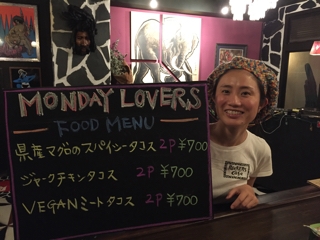 MONDAY LOVERS
FOOD MENU
県産マグロのスパイシータコス 2P ¥700
ジャークチキンタコス 2P ¥700
VEGANミートタコス 2P ¥700